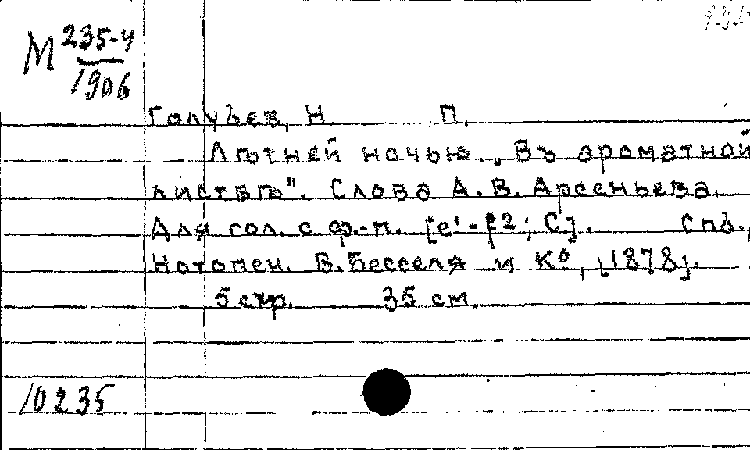 М 235-4
1906
Голубев, Н. П.
Лѣтней ночью. „Въ ароматной
листвѣ". Слова А. В. Арсеньева.
Для гол. с ф.-п. [e¹-f2; C]. Спб.,
Нотопеч. В. Бесселя и К°, [1878].
5 стр. 35 см.
10235